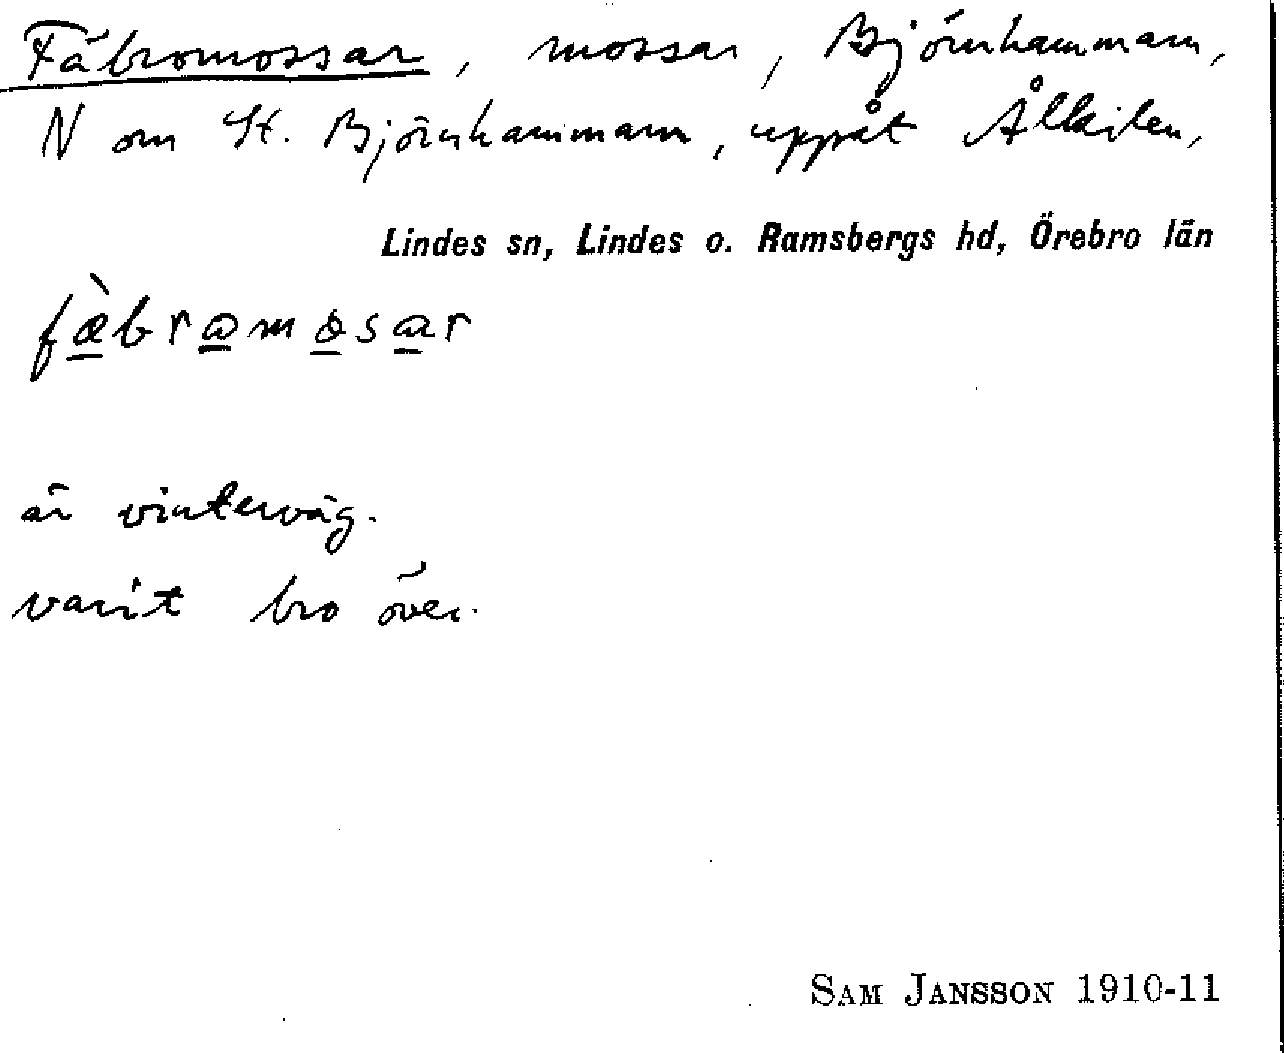 Fäbromossar, mossar, Björnhammarn,
N om St. Björnhammarn, uppåt Ålkilen,
Lindes sn, Lindes o. Ramsbergs hd, Örebro län
fæ̀bramosar
är vinterväg.
varit bro över.
SAM JANSSON 1910-11